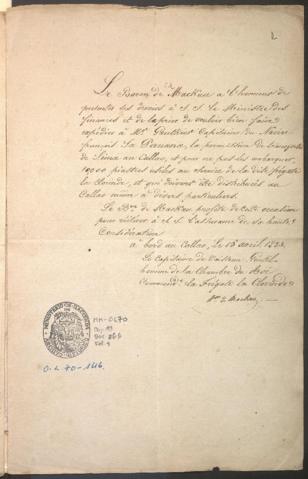 2
Le Baron de Mackau a l'honneur de
presenter ses devoirs à S. E. le Ministre des
finances et de le prier de vouloir bien faire
expédier à Mr Gautier Capitaine du Navire
français La Dorina, la permission de transporter
de Lima au Callao, et pour ne pas les embarquer
10000 piastres utiles au service de la dite frégate
la Clorinde, et qui doivent être distribués au
Callao même à divers particuliers.
Le Bon de Mackau profite de cette occasion
pour réitérer à S. E. l'assurance de sa haute
Considération
à bord au Callao, le 15 avril 1825.
Le Capitaine de Vaisseau Gentil-
homme de la Chambre du Roi
Commandt la Frégate la Clorinde
Bon de Mackau
MINISTERIO DE HACIENDA
MH-OL70
Doc 865
O.L. 70-1116.